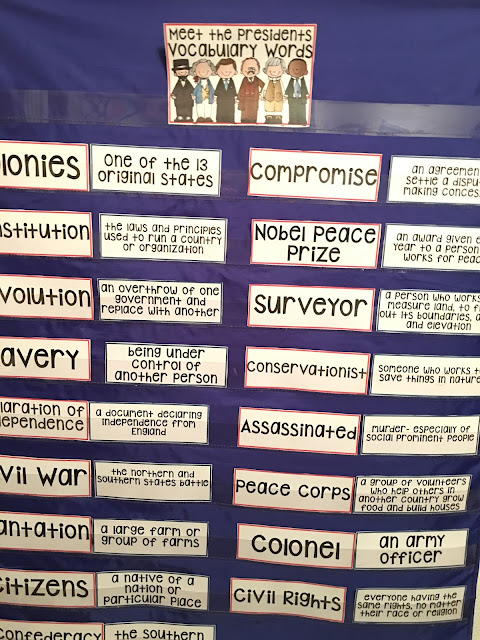 Meet the Presidents
Vocabulary Words
olonies
one of the 13
original states
Compromise
an agreemen
settle a disput
making conces
nstitution
the laws and principles
used to run a country
or organization
Nobel Peace
Prize
an award given e
year to a person
works for peac
volution
an overthrow of one
government and
replace with another
Surveyor
a person who works
measure land, to f
out its boundaries, a
and elevation
avery
being under
control of
another person
Conservationist
someone who works t
save things in nature
laration of
dependence
a document declaring
independence from
England
Assassinated
murder- especially of
social prominent people
vil War
the northern and
southern states battle
Peace Corps
a group of volunteers
who help others in
another country grow
food and build houses
antation
a large farm or
group of farms
Colonel
an army
officer
Citizens
a native of a
nation or
particular place
Civil Rights
everyone having the
same rights, no matter
their race or religion
Confederacy
the southern